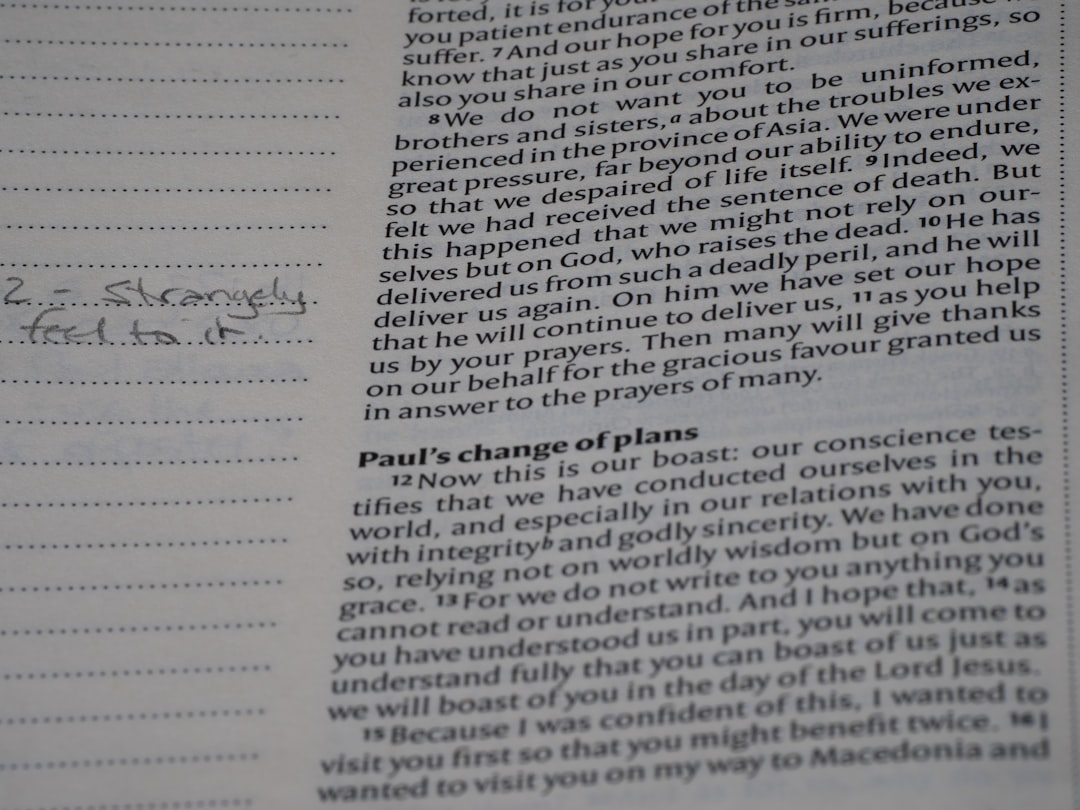 forted, it is for your
you patient endurance of the
suffer. ⁷ And our hope for you is firm, because
know that just as you share in our sufferings, so
also you share in our comfort.
⁸ We do not want you to be uninformed,
brothers and sisters,ᵃ about the troubles we ex-
perienced in the province of Asia. We were under
great pressure, far beyond our ability to endure,
so that we despaired of life itself. ⁹ Indeed, we
felt we had received the sentence of death. But
this happened that we might not rely on our-
selves but on God, who raises the dead. ¹⁰ He has
delivered us from such a deadly peril, and he will
deliver us again. On him we have set our hope
that he will continue to deliver us, ¹¹ as you help
us by your prayers. Then many will give thanks
on our behalf for the gracious favour granted us
in answer to the prayers of many.
2 - Strangely
feel to it.
Paul's change of plans
¹² Now this is our boast: our conscience tes-
tifies that we have conducted ourselves in the
world, and especially in our relations with you,
with integrityᵇ and godly sincerity. We have done
so, relying not on worldly wisdom but on God's
grace. ¹³ For we do not write to you anything you
cannot read or understand. And I hope that, ¹⁴ as
you have understood us in part, you will come to
understand fully that you can boast of us just as
we will boast of you in the day of the Lord Jesus.
¹⁵ Because I was confident of this, I wanted to
visit you first so that you might benefit twice. ¹⁶ I
wanted to visit you on my way to Macedonia and